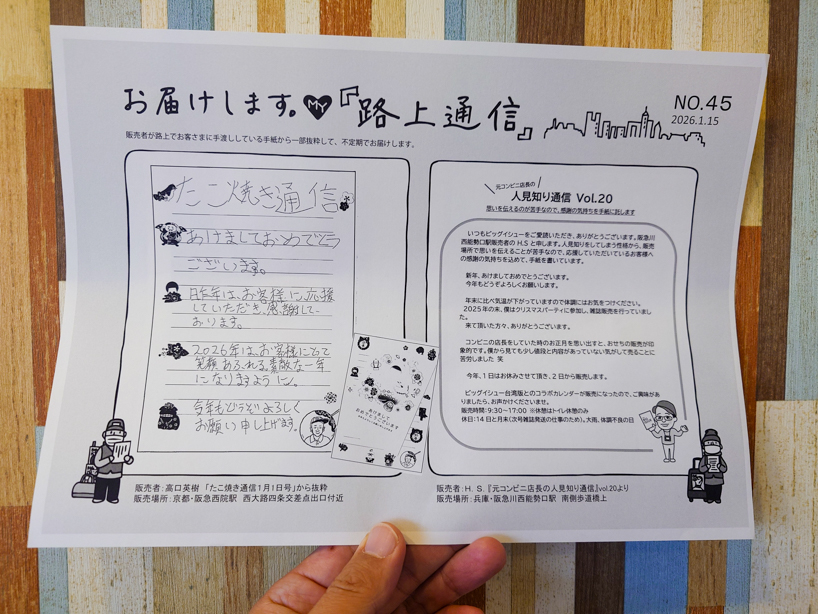 お届けします。MY『路上通信』
NO.45
2026.1.15
販売者が路上でお客さまに手渡ししている手紙から一部抜粋して、不定期でお届けします。
たこ焼き通信
あけましておめでとう
ございます。
昨年は、お客様に、応援
していただき、感謝して
おります。
2026年は、お客様にとって
笑顔あふれる。素敵な一年
になりますように。
今年もどうぞよろしく
お願い申し上げます。
あけまして
おめでとうございます
販売者：高口英樹 「たこ焼き通信1月1日号」から抜粋
販売場所：京都・阪急西院駅 西大路四条交差点出口付近
元コンビニ店長の
人見知り通信 Vol.20
思いを伝えるのが苦手なので、感謝の気持ちを手紙に託します
いつもビッグイシューをご愛読いただき、ありがとうございます。阪急川
西能勢口駅販売者の H.S と申します。人見知りをしてしまう性格から、販売
場所で思いを伝えることが苦手なので、応援していただいているお客様へ
の感謝の気持ちを込めて、手紙を書いています。
新年、あけましておめでとうございます。
今年もどうぞよろしくお願いします。
年末に比べ気温が下がっていますので体調にはお気をつけください。
2025年の末、僕はクリスマスパーティに参加し、雑誌販売を行っていまし
た。
来て頂いた方々、ありがとうございます。
コンビニの店長をしていた時のお正月を思い出すと、おせちの販売が印
象的です。僕から見ても少し値段と内容があっていない気がして売ることに
苦労しました 笑
今年、1日はお休みさせて頂き、2日から販売します。
ビッグイシュー台湾版とのコラボカレンダーが販売になったので、ご興味があ
りましたら、お声かけくださいませ。
販売時間：9:30～17:00 ※休憩はトイレ休憩のみ
休日：14日と月末(次号雑誌発送の仕事のため)。大雨、体調不良の日
販売者：H. S. 『元コンビニ店長の人見知り通信』vol.20より
販売場所：兵庫・阪急川西能勢口駅 南側歩道橋上